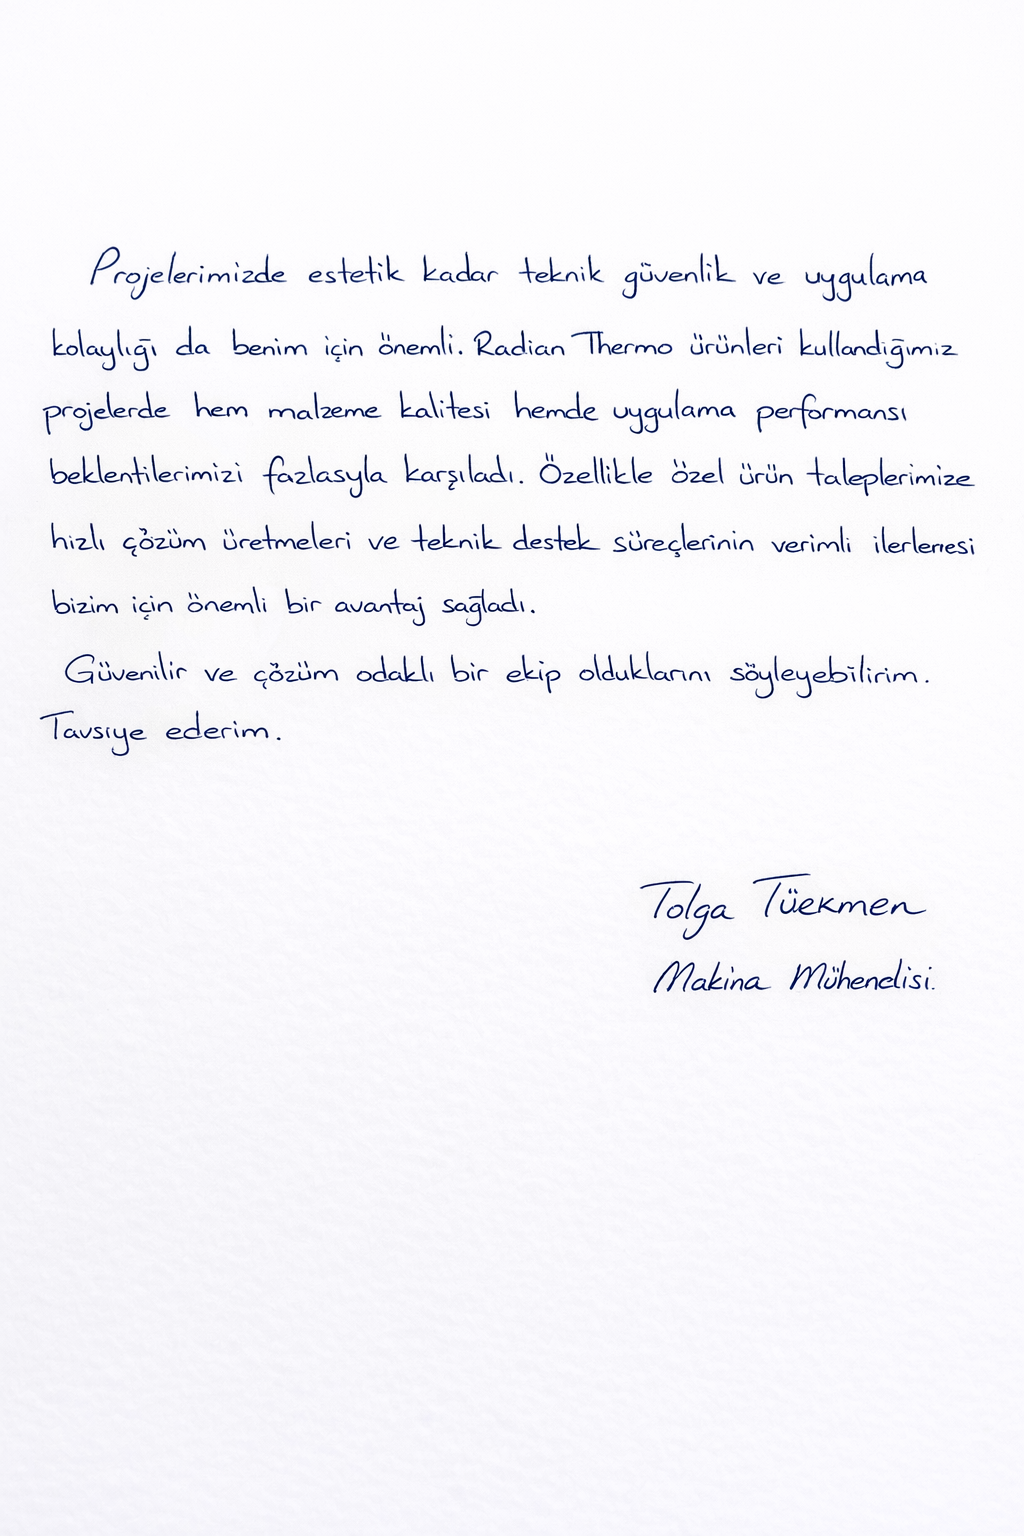 Projelerimizde estetik kadar teknik güvenlik ve uygulama
kolaylığı da benim için önemli. Radian Thermo ürünleri kullandığımız
projelerde hem malzeme kalitesi hemde uygulama performansı
beklentilerimizi fazlasyla karşıladı. Özellikle özel ürün taleplerimize
hızlı çözüm üretmeleri ve teknik destek süreçlerinin verimli ilerlemesi
bizim için önemli bir avantaj sağladı.
Güvenilir ve çözüm odaklı bir ekip olduklarını söyleyebilirim.
Tavsıye ederim.
Tolga Tüekmen
Makina Mühendisi.